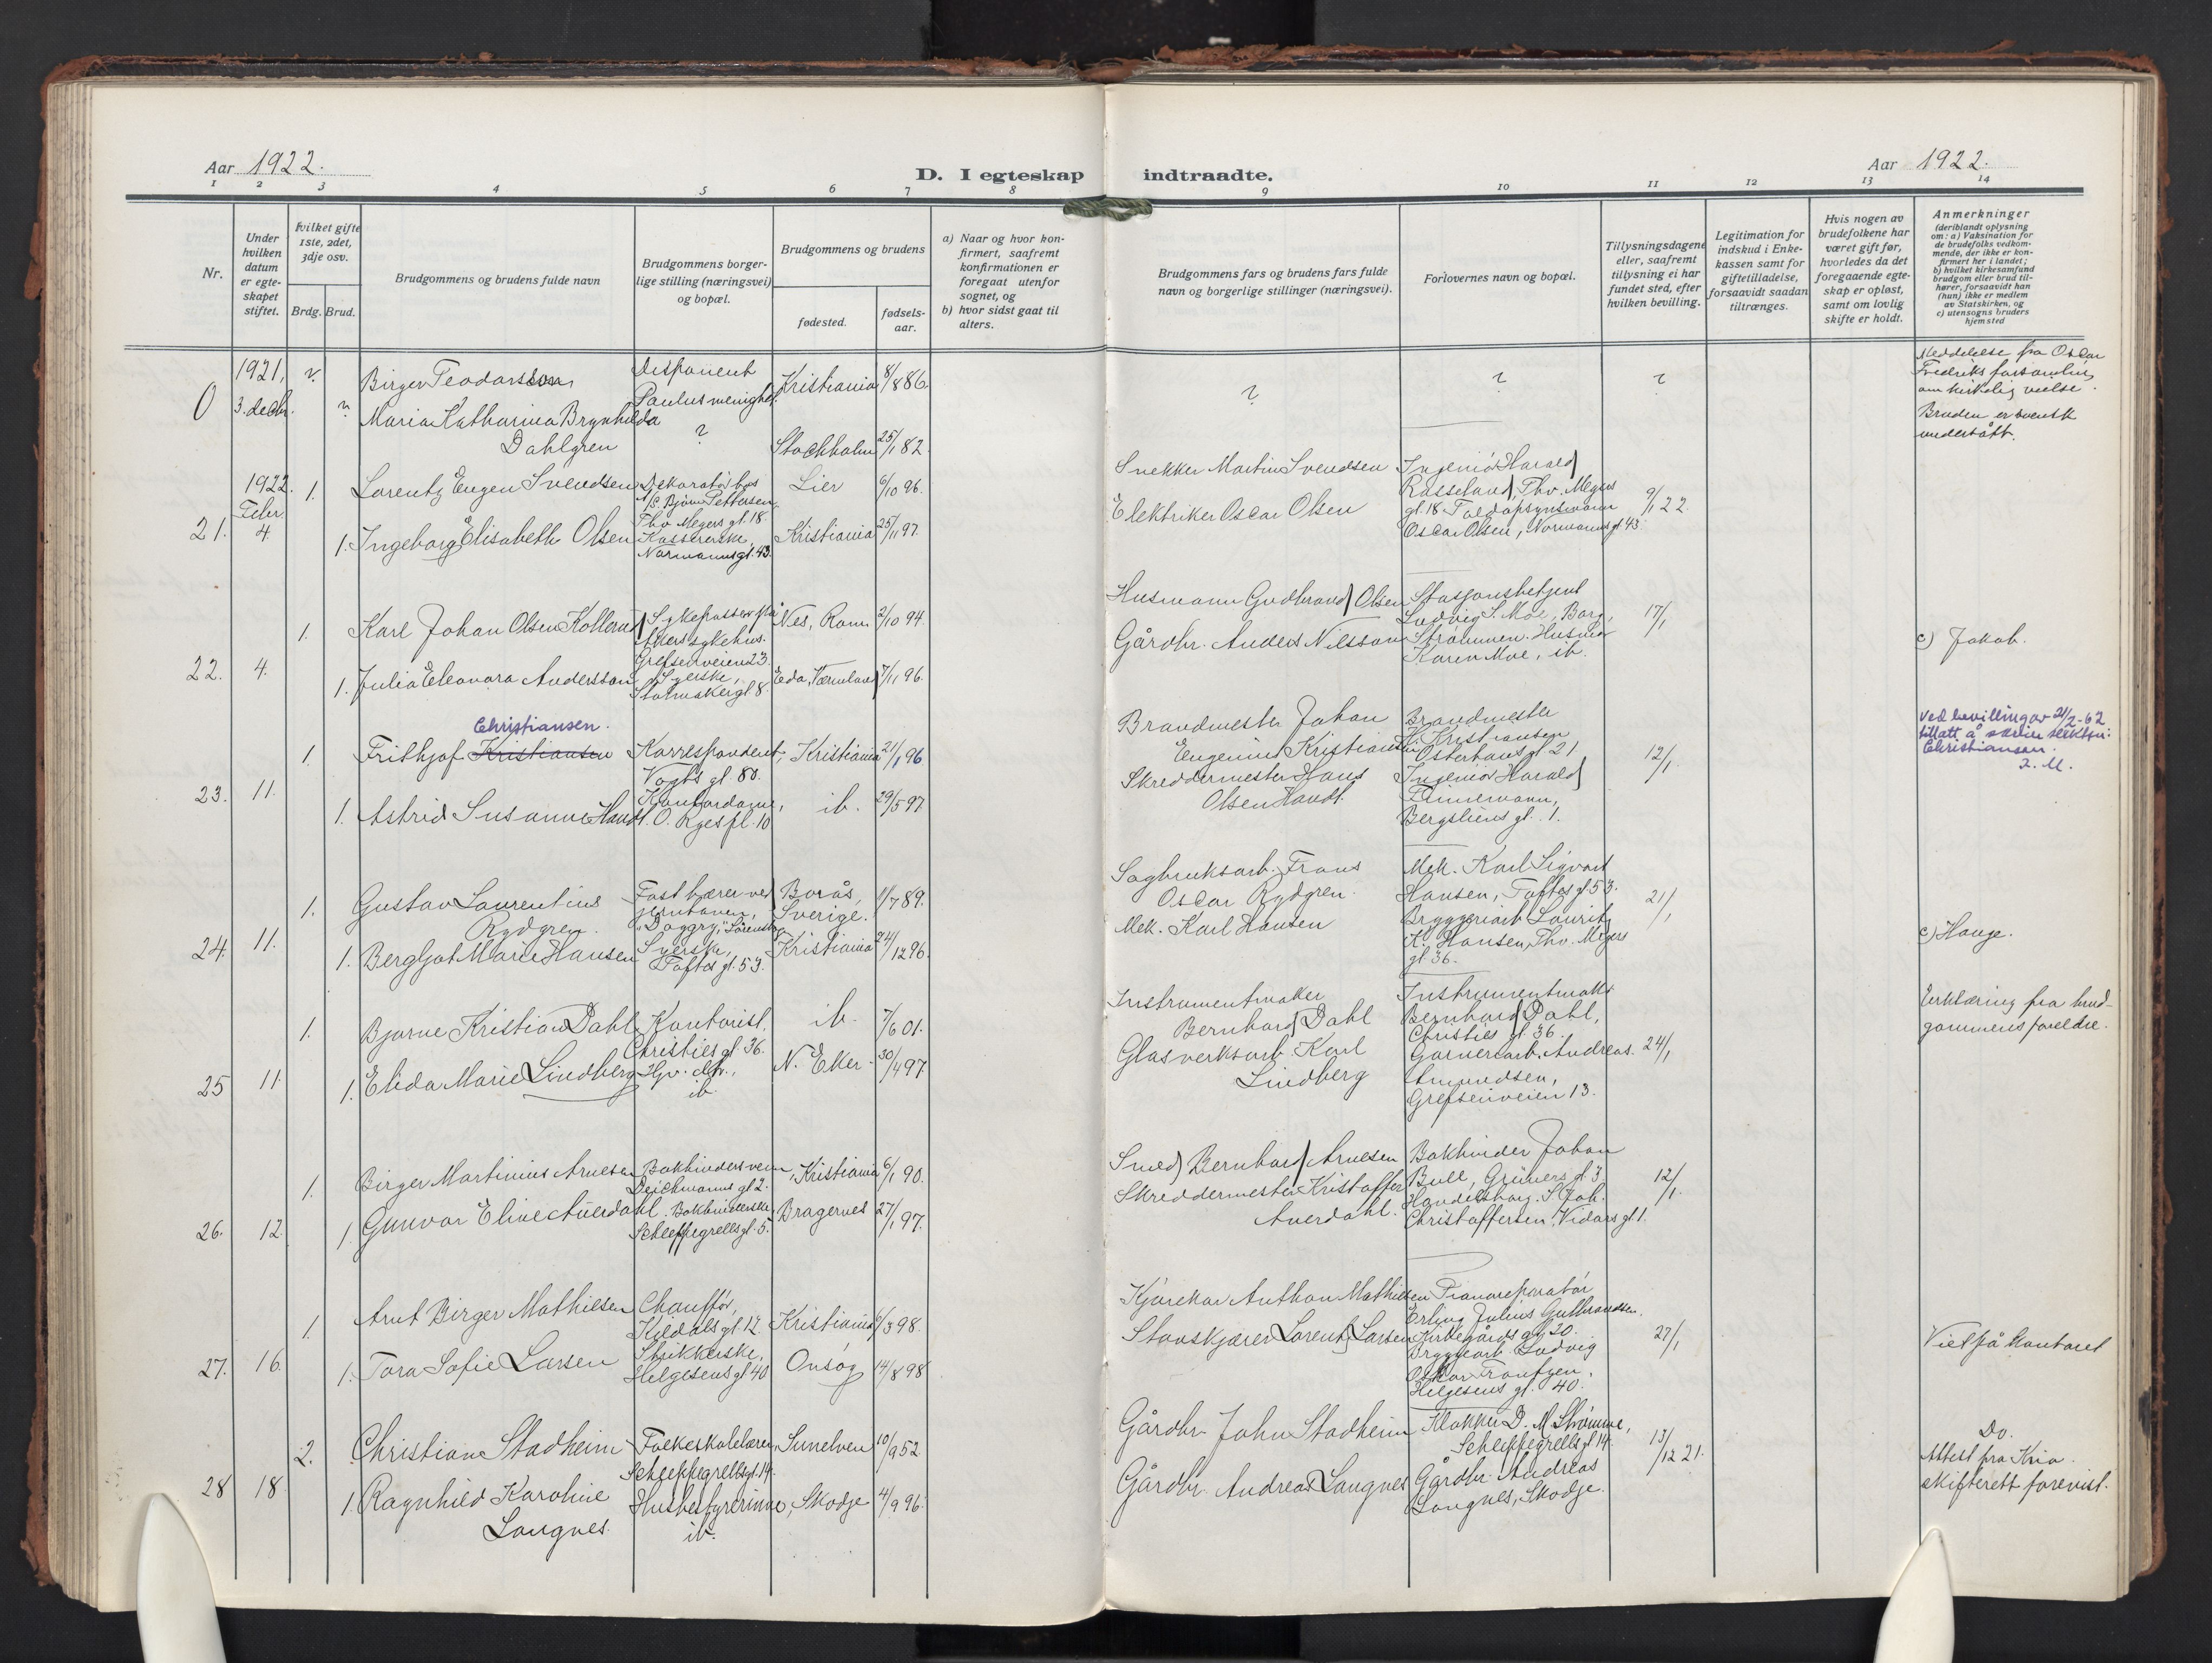 Aar 1922.
D. I egteskap indtraadte.
Aar 1922.
1 2 3 4 5 6 7 8 9 10 11 12 13 14
Nr.
Under hvilken datum er egteskapet stiftet.
Hvilket gifte 1ste, 2det, 3dje osv.
Brdg. Brud.
Brudgommens og brudens fulde navn
Brudgommens borgerlige stilling (næringsvei) og bopæl.
Brudgommens og brudens
fødested.
fødselsaar.
a) Naar og hvor konfirmert, saafremt konfirmationen er foregaat utenfor sognet, og
b) hvor sidst gaat til alters.
Brudgommens fars og brudens fars fulde navn og borgerlige stillinger (næringsvei).
Forlovernes navn og bopæl.
Tillysningsdagene eller, saafremt tillysning ei har fundet sted, efter hvilken bevilling.
Legitimation for indskud i Enkekassen samt for giftetilladelse, forsaavidt saadan tiltrænges.
Hvis nogen av brudefolkene har været gift før, hvorledes da det foregaaende egteskap er opløst, samt om lovlig skifte er holdt.
Anmerkninger
(deriblandt oplysning om: a) Vaksination for de brudefolks vedkommende, der ikke er konfirmert her i landet; b) hvilket kirkesamfund brudgom eller brud tilhører, forsaavidt han (hun) ikke er medlem av Statskirken, og c) utensogns bruders hjemsted
0 1921, 3. decbr. ?
Birger Teodorsson
Disponent
Paulus menighet.
Kristiania 8/8 86.
? Maria Katharina Brynhilda
Dahlgren
?
Stockholm 25/1 82.
? ? ?
Meddelelse fra Oscar
Fredriks forsamling
om kirkelig vielse.
Bruden er svensk
undersått.
21. 1922. Febr. 4
1. Lorentz Eugen Svendsen
Dekoratør hos
A/S. Bjørn Pettersen,
Thv. Meyers gt. 18.
Lier 6/10 96.
1. Ingeborg Elisabeth Olsen
Kassererske,
Normannsgt. 43.
Kristiania 25/11 97.
Snekker Martin Svendsen
Elektriker Oscar Olsen
Ingeniør Harald
Rasseland, Thv. Meyers
gt. 18. Toldopsynsmann
Oscar Olsen, Normannsgt 43.
9/1 22.
22. 4.
1. Karl Johan Olsen Kollerud
Sykepasser på
Akers sykehus.
Grefsenveien 23.
Nes, Rom. 2/10 94.
1. Julia Eleonora Andersson
Syerske,
Stolmakergt 8.
Eda, Værmland 7/11 96.
Husmann Gudbrand Olsen
Gårdbr. Anders Nilsson
Stasjonsbetjent
Ludvig S. Moe, Borg,
Strømmen. Husmor
Karen Moe, ib.
17/1
c) Jakob.
23. 11.
Christiansen.
1. Frithjof Kristiansen
Korrespondent,
Vogts gt. 80.
Kristiania 21/1 96.
1. Astrid Susanne Handl.
Kontordame,
O. Ryes pl. 10
ib. 29/5 97.
Brandmester Johan
Eugenius Kristiansen
Skreddermester Hans
Olsen Handl.
Brandmester
K. Kristiansen
Osterhausgt 21
Ingeniør Harald
Finnemann,
Bergsliens gt. 1.
12/1
Ved bevilling av 21/2-62
tillatt å
Christiansen.
24. 11.
1. Gustav Laurentius
Rydgren.
Fast bærer ved
jernbanen,
"Daggry",
Borås,
Sverige. 11/7 89.
1. Bergljot Marie Hansen
Syerske,
Toftes gt. 53.
Kristiania 24/12 96.
Sagbruksarb. Frans
Oscar Rydgren.
Mek. Karl Hansen
Mek. Karl Sigvart
Hansen, Toftes gt 53.
Bryggeriarb Lauritz
K. Hansen, Thv. Meyers
gt 36.
21/1
c) Hauge.
25 11
1. Bjarne Kristian Dahl
Kontorist,
Christies gt 36.
ib. 7/6 01.
1. Elida Marie Lindberg
Hjv. dtr.,
ib.
N. Eker 30/4 97
Instrumentmaker
Bernhard Dahl
Glasverksarb. Karl
Lindberg
Instrumentmaker
Bernhard Dahl,
Christies gt 36.
Garveriarb. Andreas
Amundsen,
Grefsenveien 13.
24/1
Erklæring fra brudgommens foreldre.
26. 12.
1. Birger Martinius Arnesen
Bokbindersvenn,
Deichmanns gt 2.
Kristiania 6/1 90.
1. Gunvor Eline Auerdahl.
Bokbinderske,
Schleppegrellsgt. 5.
Bragernes 27/1 97.
Smed Bernhard Arnesen
Skreddermester Kristoffer
Auerdahl.
Bokbinder Johan
Bull, Grüners gt 3
Handelsborg. S. Joh.
Christoffersen, Vidars gt 1.
12/1.
27. 16.
1. Arnt Birger Mathiesen
Chauffør,
Kjeldals gt 12.
Kristiania 6/3 98.
1. Tora Sofie Larsen
Strikkerske,
Helgesens gt 40
Onsøy 14/8 98
Kjørekar Anthon Mathiesen
Stenskjærer Lorentz Larsen
Pianoreparatør
Erling Julius Gulbrandsen,
Kirkegårds gt. 20.
Bryggearb Ludvig
Oskar
Helgesens gt. 40.
27/1
Viet på kontoret
28 18.
2. Christian Stadheim
Folkeskolelærer,
Schleppegrellsgt. 14.
Sunelven 10/9 52.
1. Ragnhild Karoline
Langnes.
Husbestyrerinne,
ib.
Skodje 4/9 96.
Gårdbr. John Stadheim
Gårdbr. Andreas Langnes
Klokker D. M. Strømme,
Schleppegrells gt 14.
Gårdbr. Andreas
Langnes, Skodje.
13/12 21.
Do.
Attest fra Kria.
skifterett forevist.